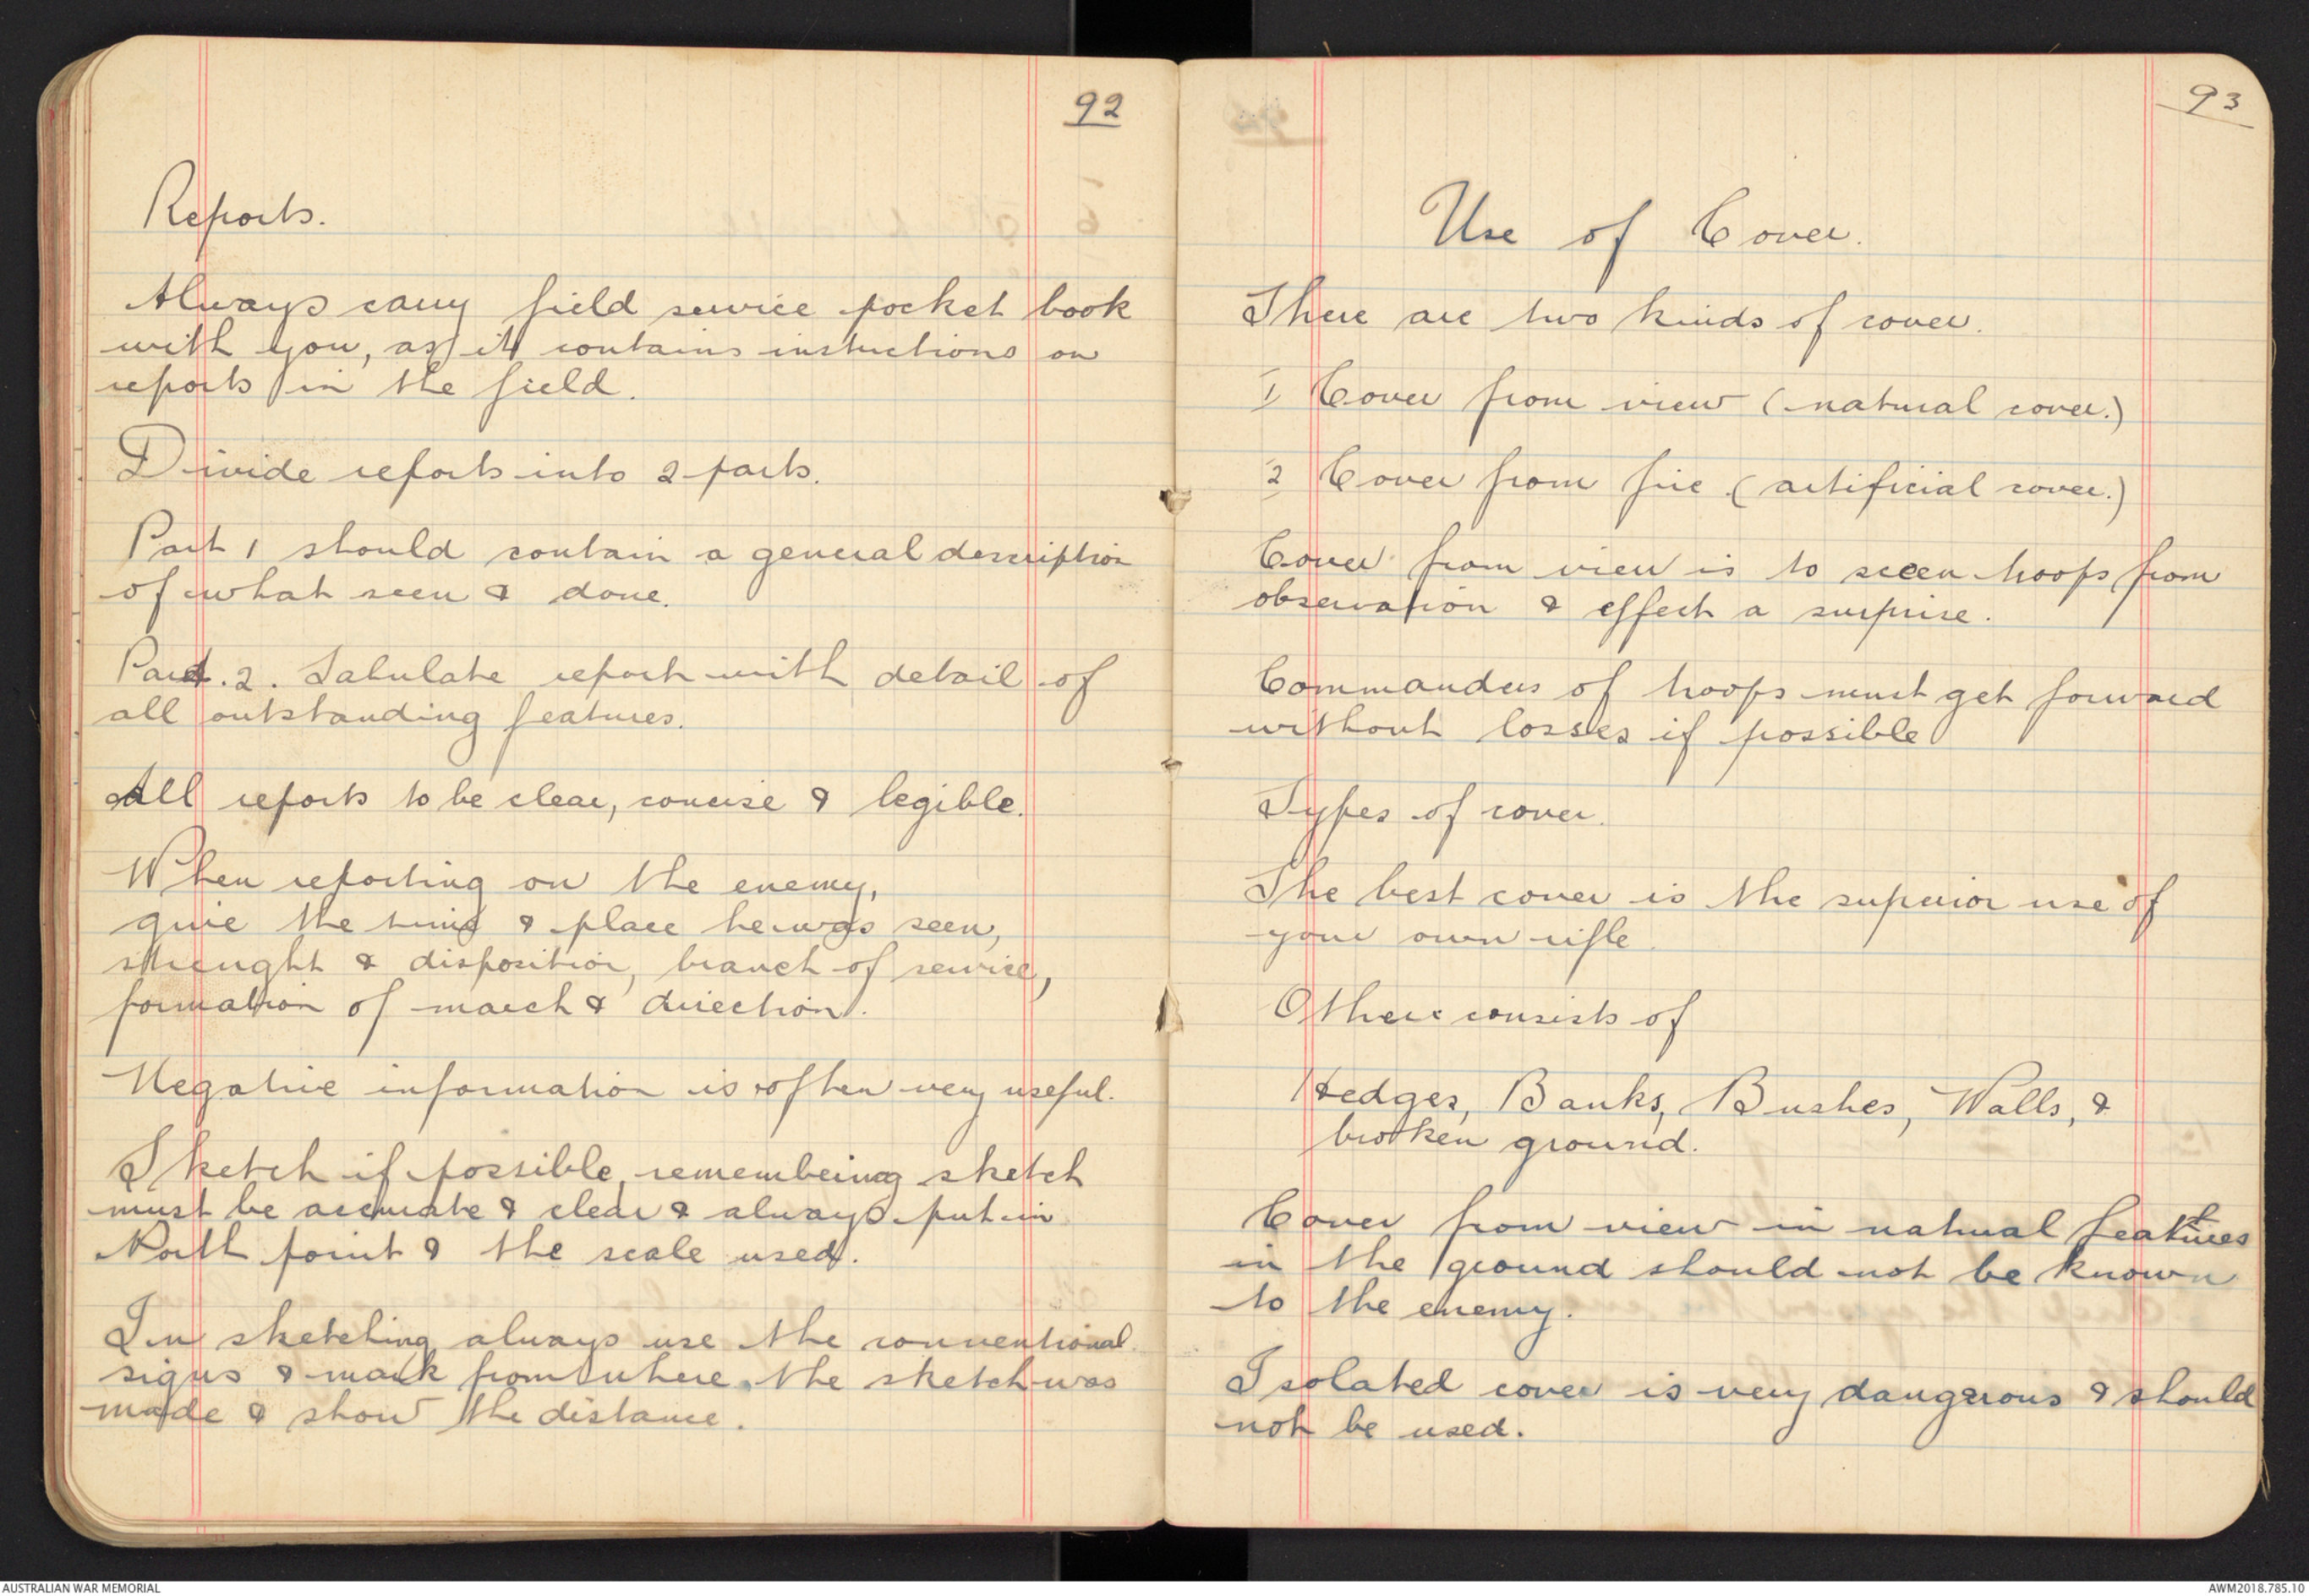 92
Reports.
Always carry field service pocket book
with you, as it contains instructions on
reports in the field.
Divide reports into 2 parts.
Part 1 should contain a general description
of what seen & done.
Part. 2. Tabulate report with detail of
all outstanding features.
All reports to be clear, concise & legible.
When reporting on the enemy,
give the time & place he was seen,
strenght & disposition, branch of service,
formation of march & direction.
Negative information is often very useful.
Sketch if possible, remembering sketch
must be accurate & clear & always put in
North point & the scale used.
In sketching always use the conventional
signs & mark from where the sketch was
made & show the distance.
93
Use of Cover.
There are two kinds of cover.
1 Cover from view (natural cover.)
2 Cover from fire (artificial cover.)
Cover from view is to screen troops from
observation & effect a surprise.
Commanders of troops must get forward
without losses if possible
Types of cover.
The best cover is the superior use of
your own rifle.
Others consists of
Hedges, Banks, Bushes, Walls, &
broken ground.
Cover from view in natural features
in the ground should not be known
to the enemy.
Isolated cover is very dangerous & should
not be used.
AUSTRALIAN WAR MEMORIAL
AWM2018.785.10